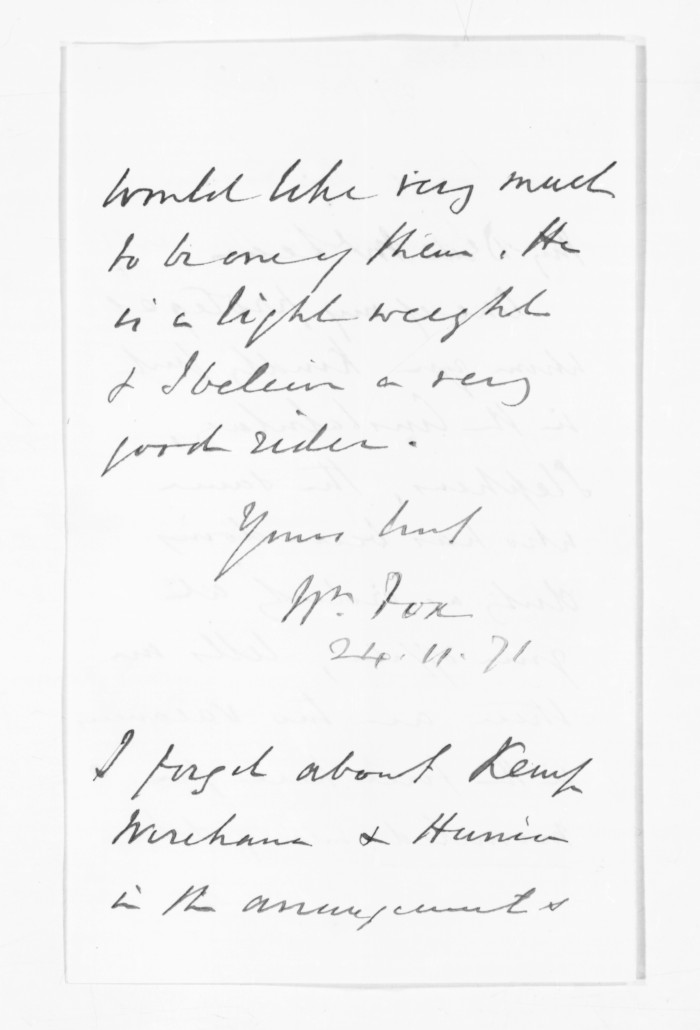 would like very much
to be one of them. He
is a light weight
& I beleive a very
good rider.
Yours truly
Wm. Fox
24.11.71
I forget about Kemp
Wirihana & Hunia
in the arrangements